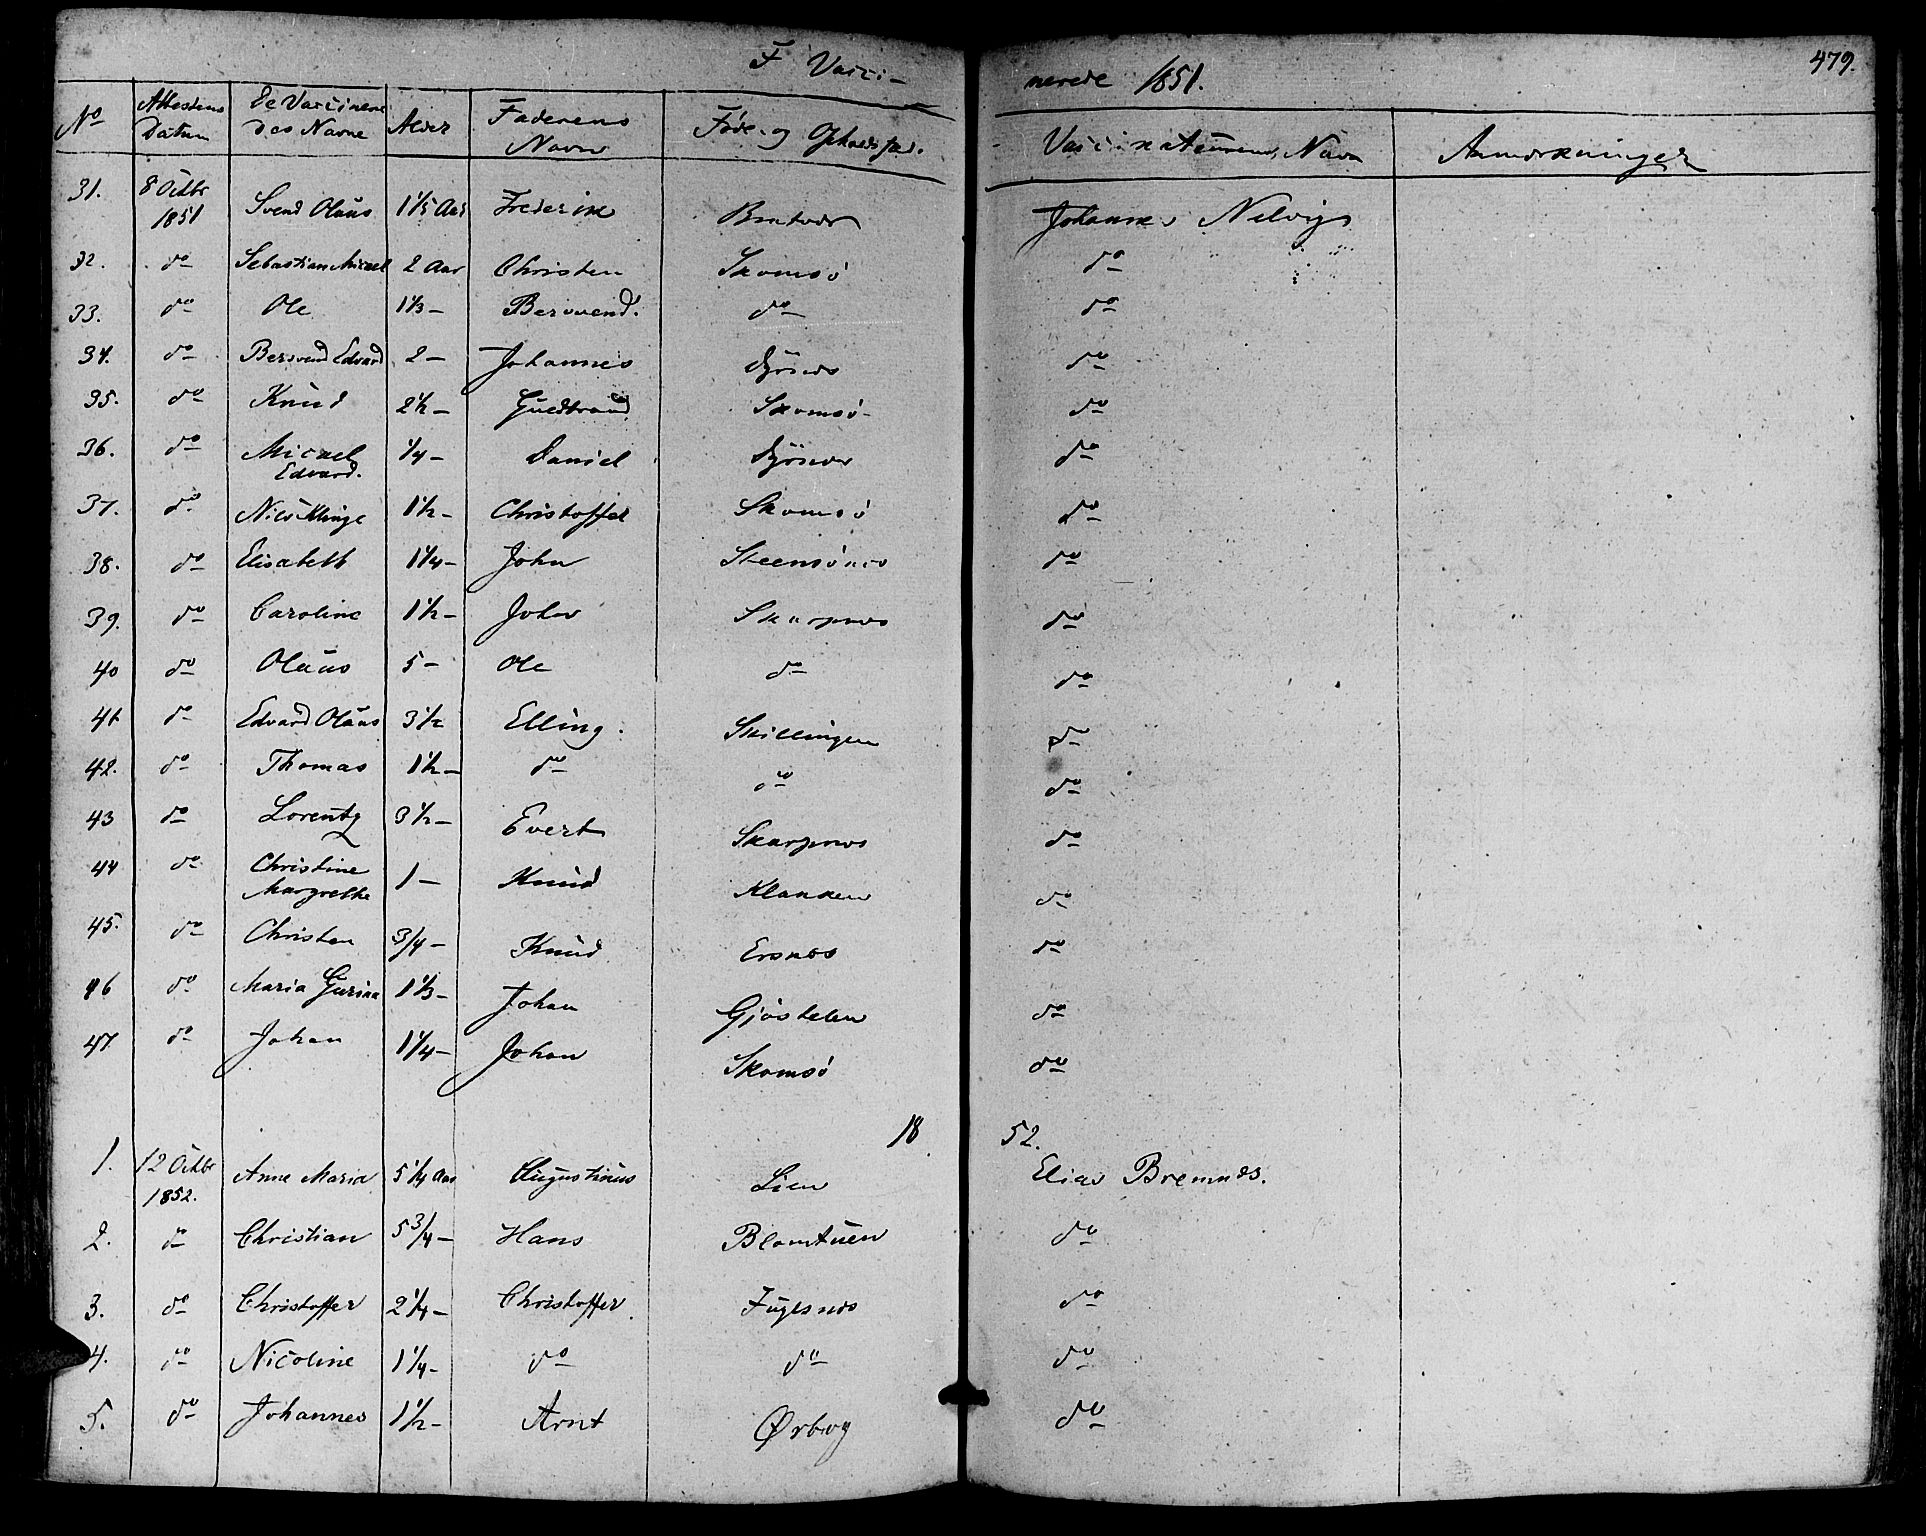 F. Vacci-
nerede 1851.
479.
No | Attestens Datum | De Vaccinere des Navne | Alder | Faderens Navn | Føde- og Opholdssted. | Vaccinateurens Navn | Anmærkninger
31. | 8 Octbr 1851 | Svend Olaus | 1 1/5 Aar | Frederik | | Johannes Nelvig
32. | do | Sebastian Micael | 2 Aar | Christen | Skomsö | do
33. | do | Ole | 1 1/3 - | Bersvend. | do | do
34. | do | Bersvend Edvard | 2 - | Johannes | | do
35. | do | Knud | 2 1/2 - | Gudbrand | Skomsö | do
36. | do | Micael Edvard. | 1/4 - | Daniel | | do
37. | do | Nils Klinge | 1 1/2 - | Christoffer | Skomsö | do
38. | do | Elisabeth | 1 1/4 - | John | Steensönes | do
39. | do | Caroline | 1 1/2 - | John | Skarpnes | do
40 | do | Olaus | 5 - | Ole | do | do
41 | do | Edvard Olaus | 3 1/2 | Elling. | Skillingen | do
42. | do | Thomas | 1 1/2 - | do | do | do
43 | do | Lorentz | 3 1/2 - | Evert | Skarpnes | do
44 | do | Christine Margrethe | 1 - | Knud | Klakken | do
45. | do | Christen | 3/4 - | Knud | Ersnes | do
46 | do | Maria Gurina | 1 1/3 - | Johan | Gjöstelen | do
47 | do | Johan | 1 1/4 - | Johan | Skomsö | do
18 52.
1. | 12 Octbr 1852. | Anne Maria | 5 1/4 Aar | Augustinus | Lien | Elias Bremnes.
2. | do | Christian | 5 3/4 - | Hans | Blomtuen | do
3. | do | Christoffer | 2 1/4 - | Christoffer. | Fuglsnes | do
4. | do | Nicoline | 1 1/4 - | do | do | do
5. | do | Johannes | 1 1/2 - | Arnt | Ørbog | do